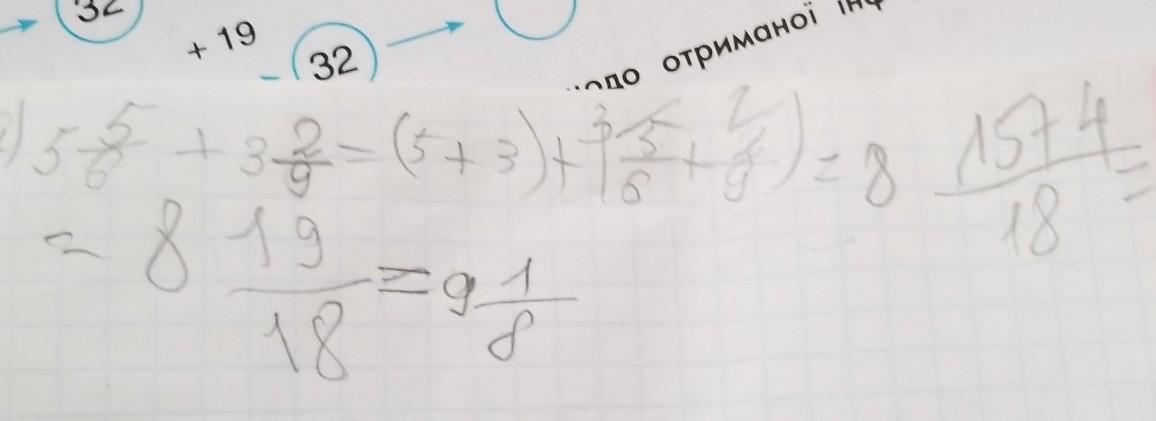 32
+ 19
- 32
отриманої
5 5/6 + 3 2/9 = (5 + 3) + (5/6 + 2/9) = 8 15+4/18 =
= 8 19/18 = 9 1/8